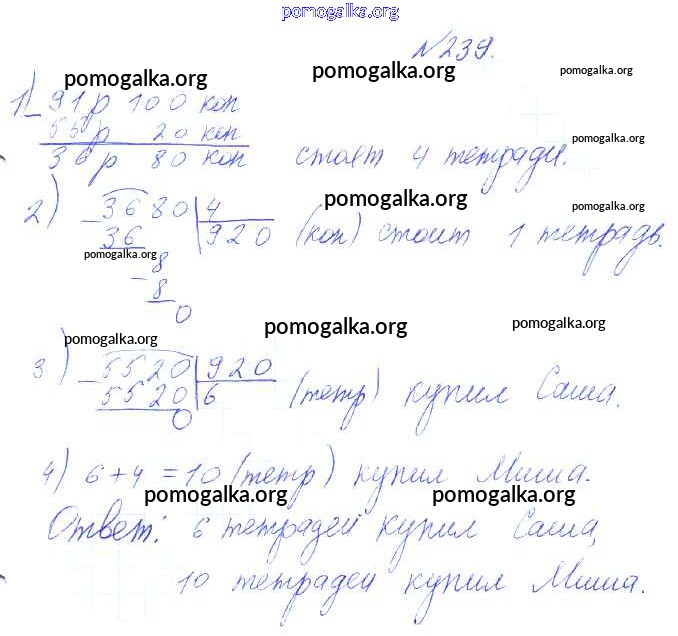 pomogalka.org
№239.
pomogalka.org pomogalka.org pomogalka.org
1) 91 р 100 коп
pomogalka.org
55 р 20 коп
36 р 80 коп стоят 4 тетради.
pomogalka.org pomogalka.org
2) 3680 4
36 920 (коп) стоит 1 тетрадь.
pomogalka.org
8
8
0
pomogalka.org pomogalka.org pomogalka.org
3) 5520 920
5520 6 (тетр) купил Саша.
0
4) 6 + 4 = 10 (тетр) купил Миша.
pomogalka.org pomogalka.org
Ответ: 6 тетрадей купил Саша,
10 тетрадей купил Миша.